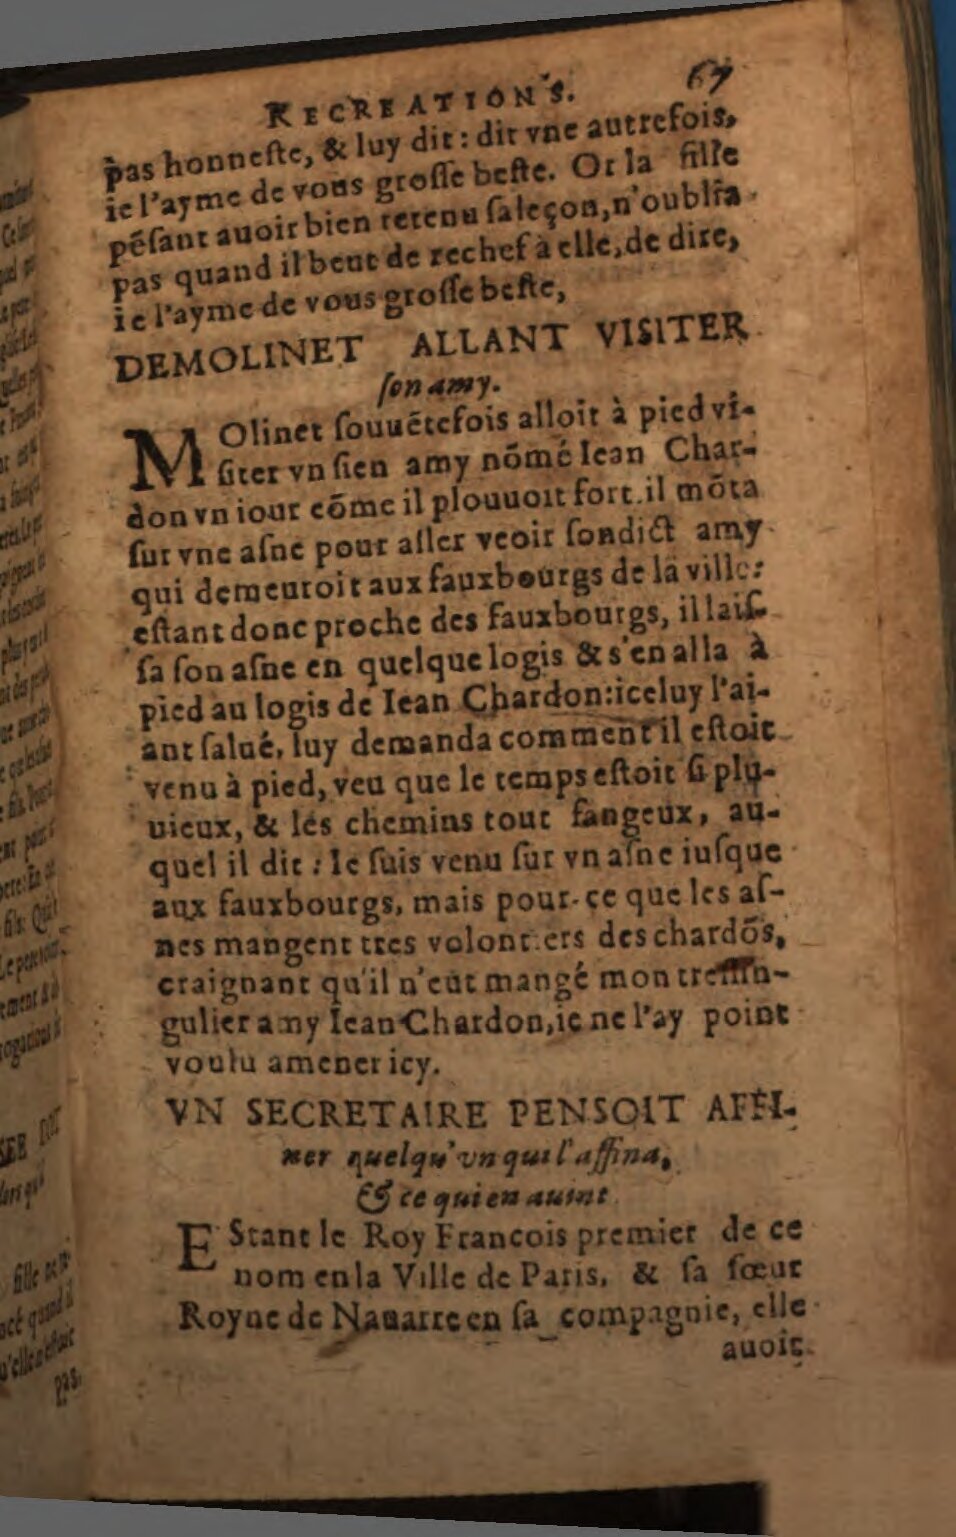 RECREATIONS. 67
pas honneſte, & luy dit : dit vne autrefois,
ie l'ayme de vous groſſe beſte. Or la fille
pẽſant auoir bien retenu ſa leçon, n'oublia
pas quand il beut de rechef à elle, de dire,
ie l'ayme de vous groſſe beſte,
DEMOLINET ALLANT VISITER
ſon amy.
MOlinet ſouuẽtefois alloit à pied vi-
ſiter vn ſien amy nõmé Iean Char-
don vn iour cõme il plouuoit fort il mõta
ſur vne aſne pour aller veoir ſondict amy
qui demeuroit aux fauxbourgs de la ville:
eſtant donc proche des fauxbourgs, il laiſ-
ſa ſon aſne en quelque logis & s'en alla à
pied au logis de Iean Chardon: iceluy l'ai-
ant ſalué, luy demanda comment il eſtoit
venu à pied, veu que le temps eſtoit ſi plu-
uieux, & les chemins tout fangeux, au-
quel il dit : Ie ſuis venu ſur vn aſne iuſque
aux fauxbourgs, mais pour-ce que les aſ-
nes mangent tres volontiers des chardõs,
craignant qu'il n'eut mangé mon treſſin-
gulier amy Iean Chardon, ie ne l'ay point
voulu amener icy.
VN SECRETAIRE PENSOIT AFFI-
ner quelqu'vn qui l'affina,
& ce qui en auint
EStant le Roy Francois premier de ce
nom en la Ville de Paris, & ſa ſœur
Royne de Nauarre en ſa compagnie, elle
auoit